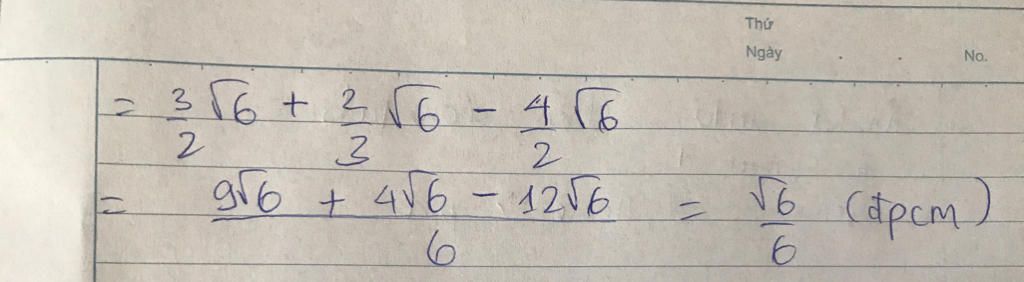 Thứ
Ngày . . No.
= 3/2 √6 + 2/3 √6 - 4/2 √6
= (9√6 + 4√6 - 12√6)/6 = √6/6 (đpcm)